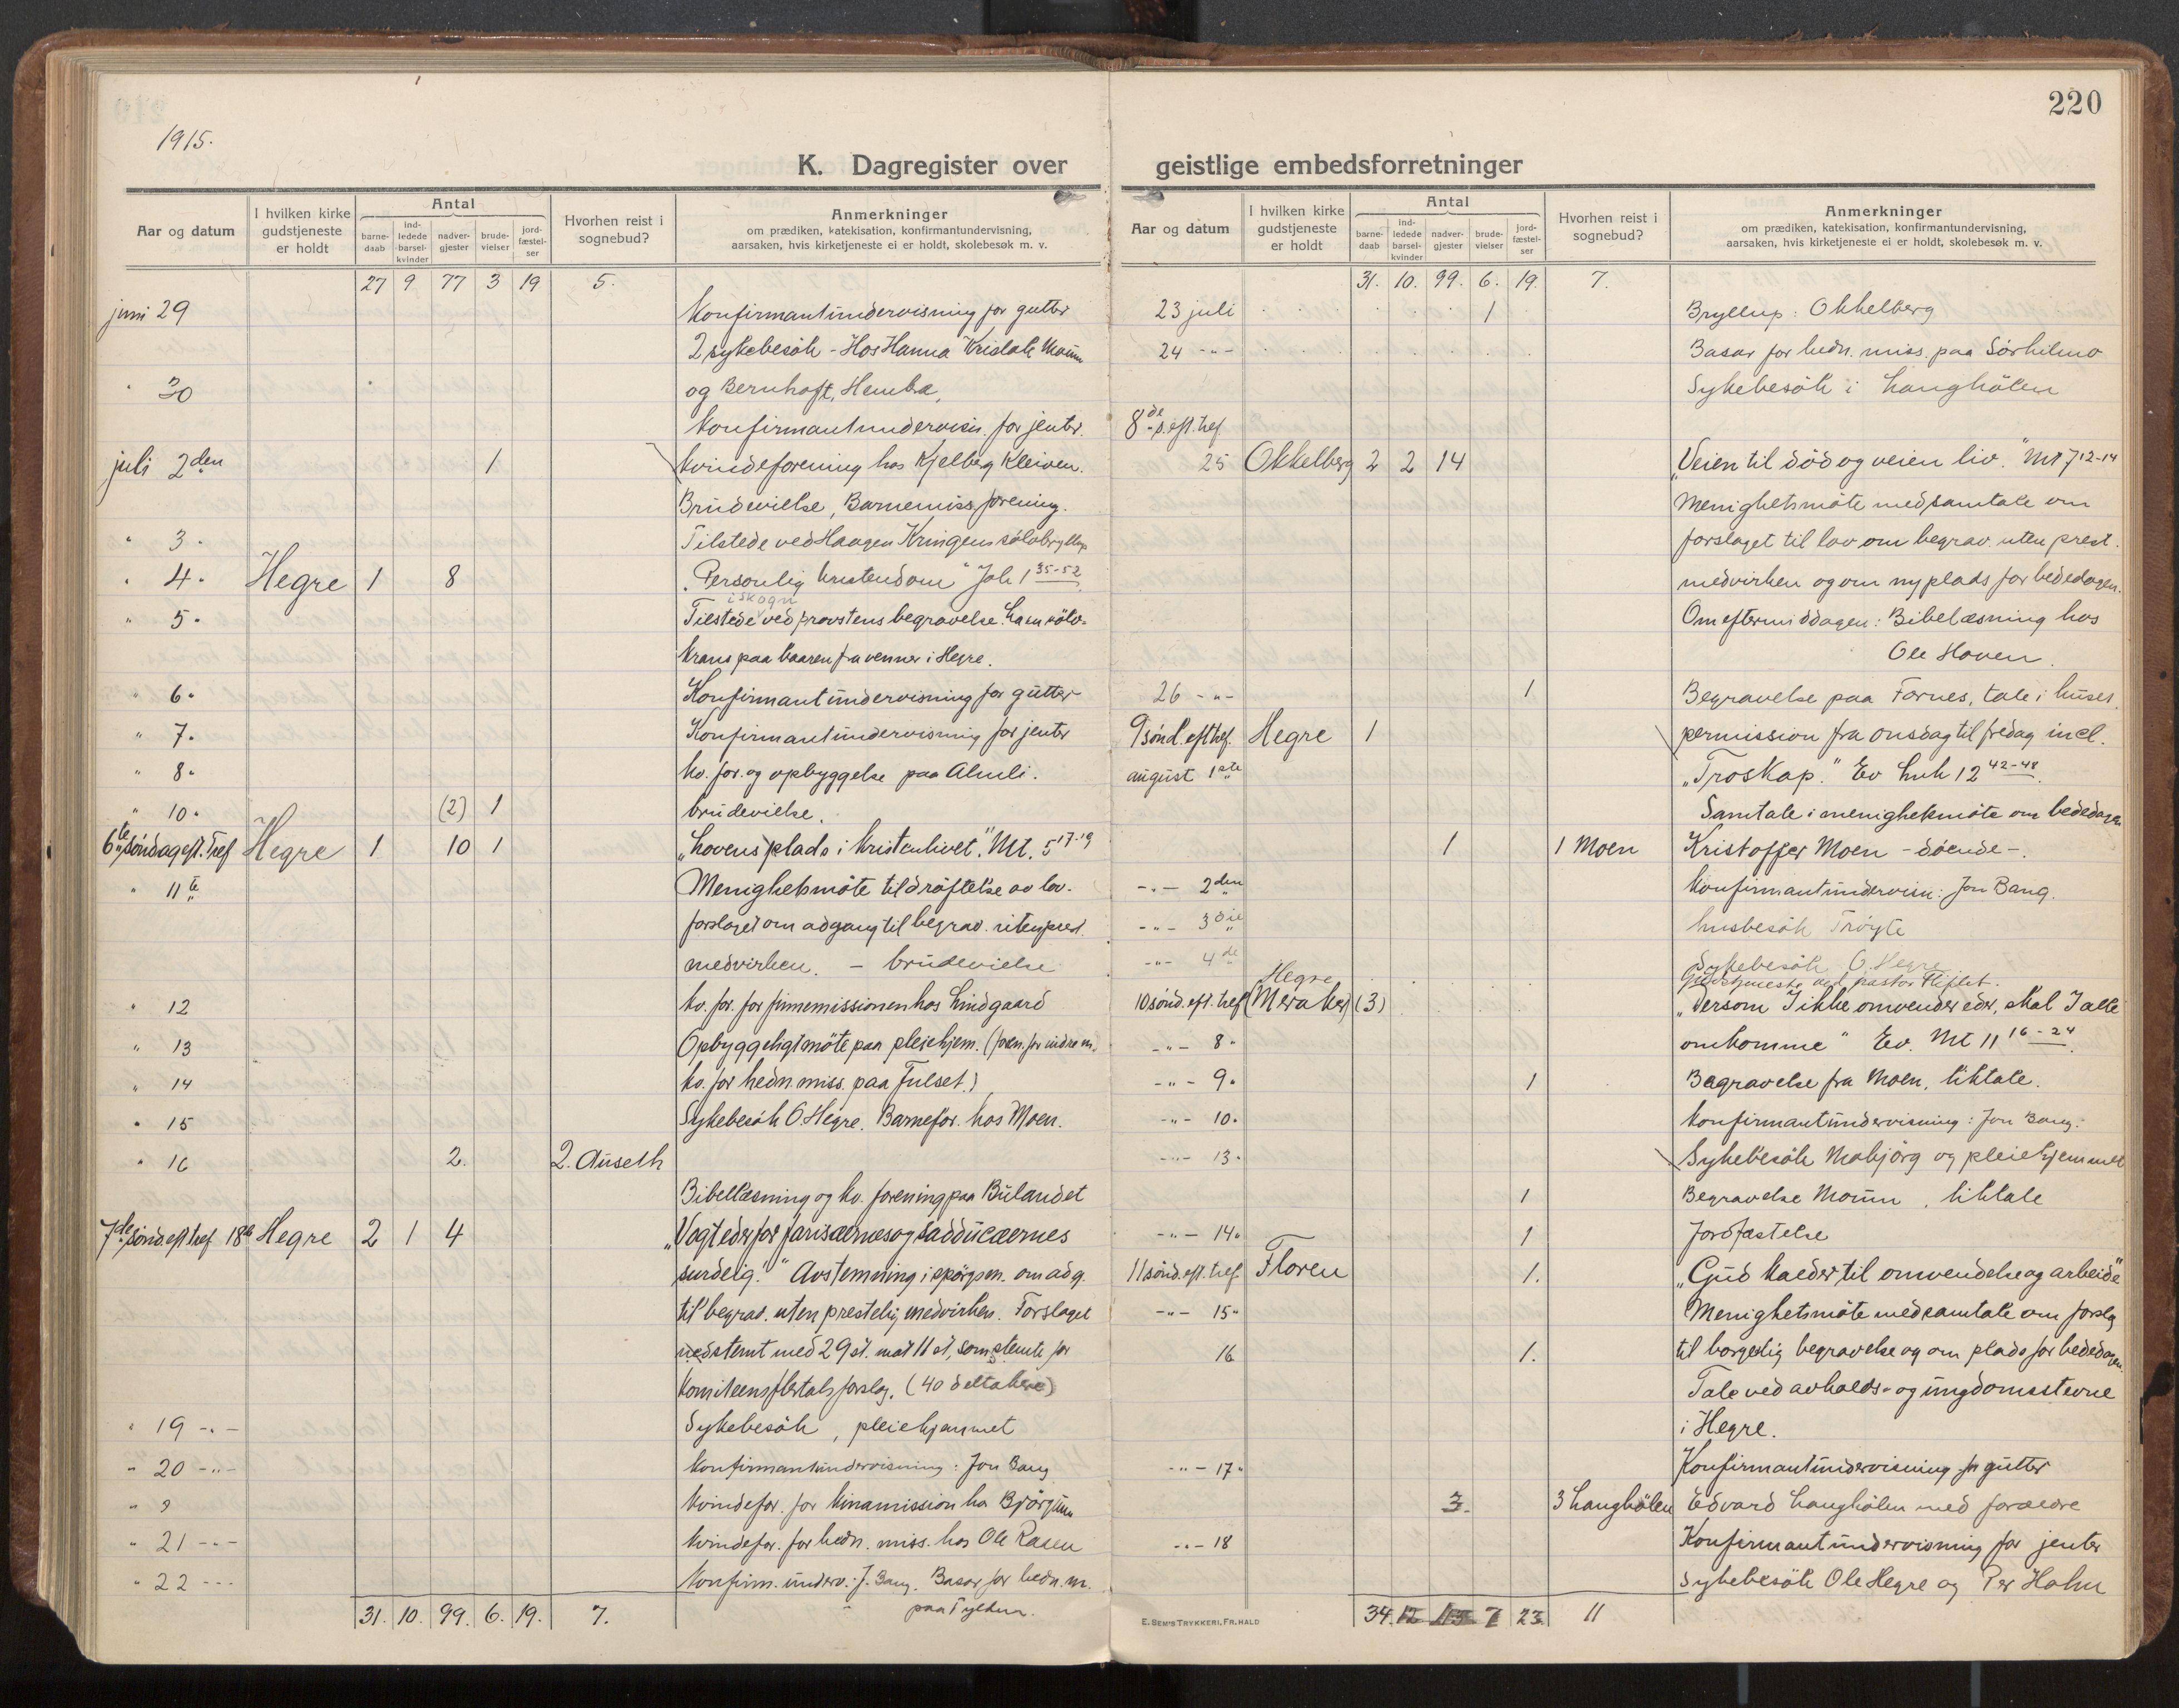 220
1915.
K. Dagregister over
Aar og datum
I hvilken kirke gudstjeneste er holdt
Antal
barne-daab
ind-ledede barsel-kvinder
nadver-gjester
brude-vielser
jord-fæstel-ser
Hvorhen reist i sognebud?
Anmerkninger
om prædiken, katekisation, konfirmantundervisning,
aarsaken, hvis kirketjeneste ei er holdt, skolebesøk m. v.
27 9 77 3 19 5.
juni 29 Konfirmantundervisning for gutter
2 sykebesök - Hos Hanna Moum
" 30 og Bernhoft, Hembre,
Konfirmantundervisn. for jenter.
juli 2den 1 Kvindeforening hos Kjelberg Kleiven.
Brudevielse, Barnemiss. forening.
" 3. Tilstede ved Haagen Kringens sölvbryllup
" 4. Hegre 1 8 "Personlig kristendom" Joh 1 35-52
i Skogn
" 5. Tilstede ved provstens begravelse. La en sölv-
krans paa baaren fra venner i Hegre.
" 6. Konfirmantundervisning for gutter
" 7. Konfirmantundervisning for jenter
" 8. kv. for. og opbyggelse paa Almli.
" 10. (2) 1 brudevielse.
6te söndag eft. Tref Hegre 1 10 1 "Lovens plads i kristenlivet". Mt. 5 17-19
" 11te Menighetsmöte til dröftelse av lov-
forslaget om adgang til begrav. uten prest.
medvirken. - brudevielse
" 12 kv. for. for finnemissionen hos Lindgaard
" 13 Opbyggeligt möte paa pleiehjem. (foren. for indre m.
" 14 kv. for hedn. miss. paa Fulset.)
" 15 Sykebesök O. Hegre. Barnefor. hos Moen.
" 16 2. 2. Auseth
Bibellæsning og kv. forening paa Bulandet
7de sönd. eft tref 18de Hegre 2 1 4 "Vogt eder for farisæernes og sadducæernes
surdeig." Avstemning i spörgsm. om adg.
til begrav. uten prestelig medvirken. Forslaget
nedstemt med 29 st. mot 11 st, som stemte for
Komiteens flertals forslag. (40 deltakere)
" 19 -"- Sykebesök, pleiehjemmet
" 20 -"- Konfirmantundervisning: Jon Bang
" " Kvindefor. for Kinamission hos Björgum
" 21 -"- Kvindefor. for hedn. miss. hos Ole Rasen
" 22 -"- Konfirm. underv.: J. Bang. Basar for hedn. m.
31. 10. 99. 6. 19. 7. paa
geistlige embedsforretninger
Aar og datum
I hvilken kirke gudstjeneste er holdt
Antal
barne-daab
ind-ledede barsel-kvinder
nadver-gjester
brude-vielser
jord-fæstel-ser
Hvorhen reist i sognebud?
Anmerkninger
om prædiken, katekisation, konfirmantundervisning,
aarsaken, hvis kirketjeneste ei er holdt, skolebesøk m. v.
31. 10. 99. 6. 19. 7.
23 juli 1 Bryllup: Okkelberg
24 -"- Basar for hedn. miss. paa Sörkilmo
Sykebesök i Langhölen
8de s. eft. tref.
25 Okkelberg 2 2 14 "Veien til död og veien liv." Mt 7 12-14
Menighetsmöte med samtale om
forslaget til lov om begrav. uten prest.
medvirken og om ny plads for bededagen.
Om eftermiddagen: Bibellæsning hos
Ole Hoven.
26 -"- 1 Begravelse paa Fornes, tale i huset.
9 sönd. eft tref. Hegre 1 permission fra onsdag til fredag incl.
august 1ste "Troskap." Ev Luk 12 42-48.
Samtale i menighetsmöte om bededagen
1 1 Moen Kristoffer Moen - döende -.
-"- 2den Konfirmantundervisn: Jon Bang.
-"- 3die husbesök Tröyte
-"- 4de Sykebesök O. Hegre
Hegre Gudstjeneste ved pastor
10 sönd. eft. tref (Meraker) (3) "Dersom I ikke omvender eder, skal I alle
-"- 8. omkomme" Ev. Mt 11 16-24.
-"- 9. 1 Begravelse fra Moen, liktale.
-"- 10. Konfirmantundervisning: Jon Bang.
-"- 13. Sykebesök Mobjörg og pleiehjemmet
1 Begravelse Moum, liktale
-"- 14. 1 Jordfæstelse
11 sönd. eft. tref. Floren 1. "Gud kalder til omvendelse og arbeide"
-"- 15. Menighetsmöte med samtale om forslag
16 1. til borgerlig begravelse og om plads for bededagen
Tale ved avholds- og ungdomsstevne
i Hegre.
-"- 17. Konfirmantundervisning for gutter
3. 3 Langhölen Edvard Langhölen med forældre
-"- 18 Konfirmantundervisning for jenter
Sykebesök Ole Hegre og Per Holm
34. 12 7 23. 11
E. SEM'S TRYKKERI, FR.HALD